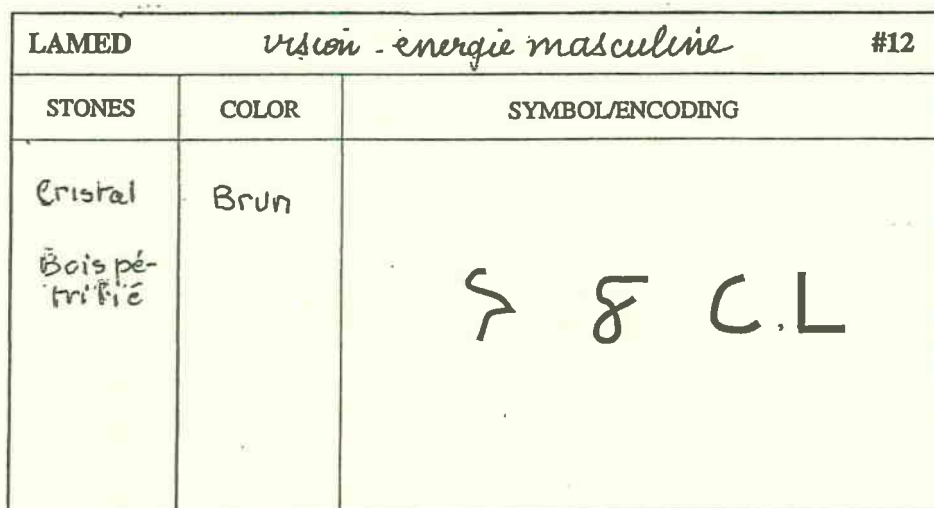 LAMED vision - énergie masculine #12
STONES COLOR SYMBOL/ENCODING
Cristal Brun
Bois pé-
trifié
8 C.L